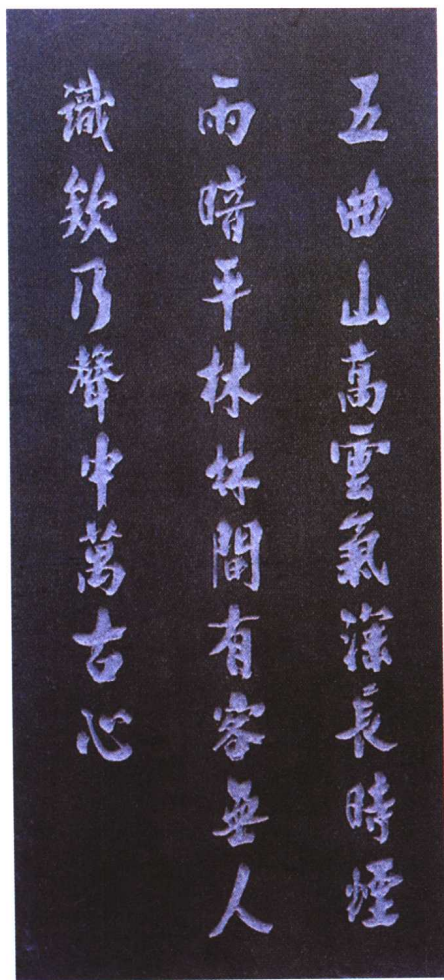 五曲山高雲氣深長時煙
雨暗平林林間有客無人
識欸乃聲中萬古心